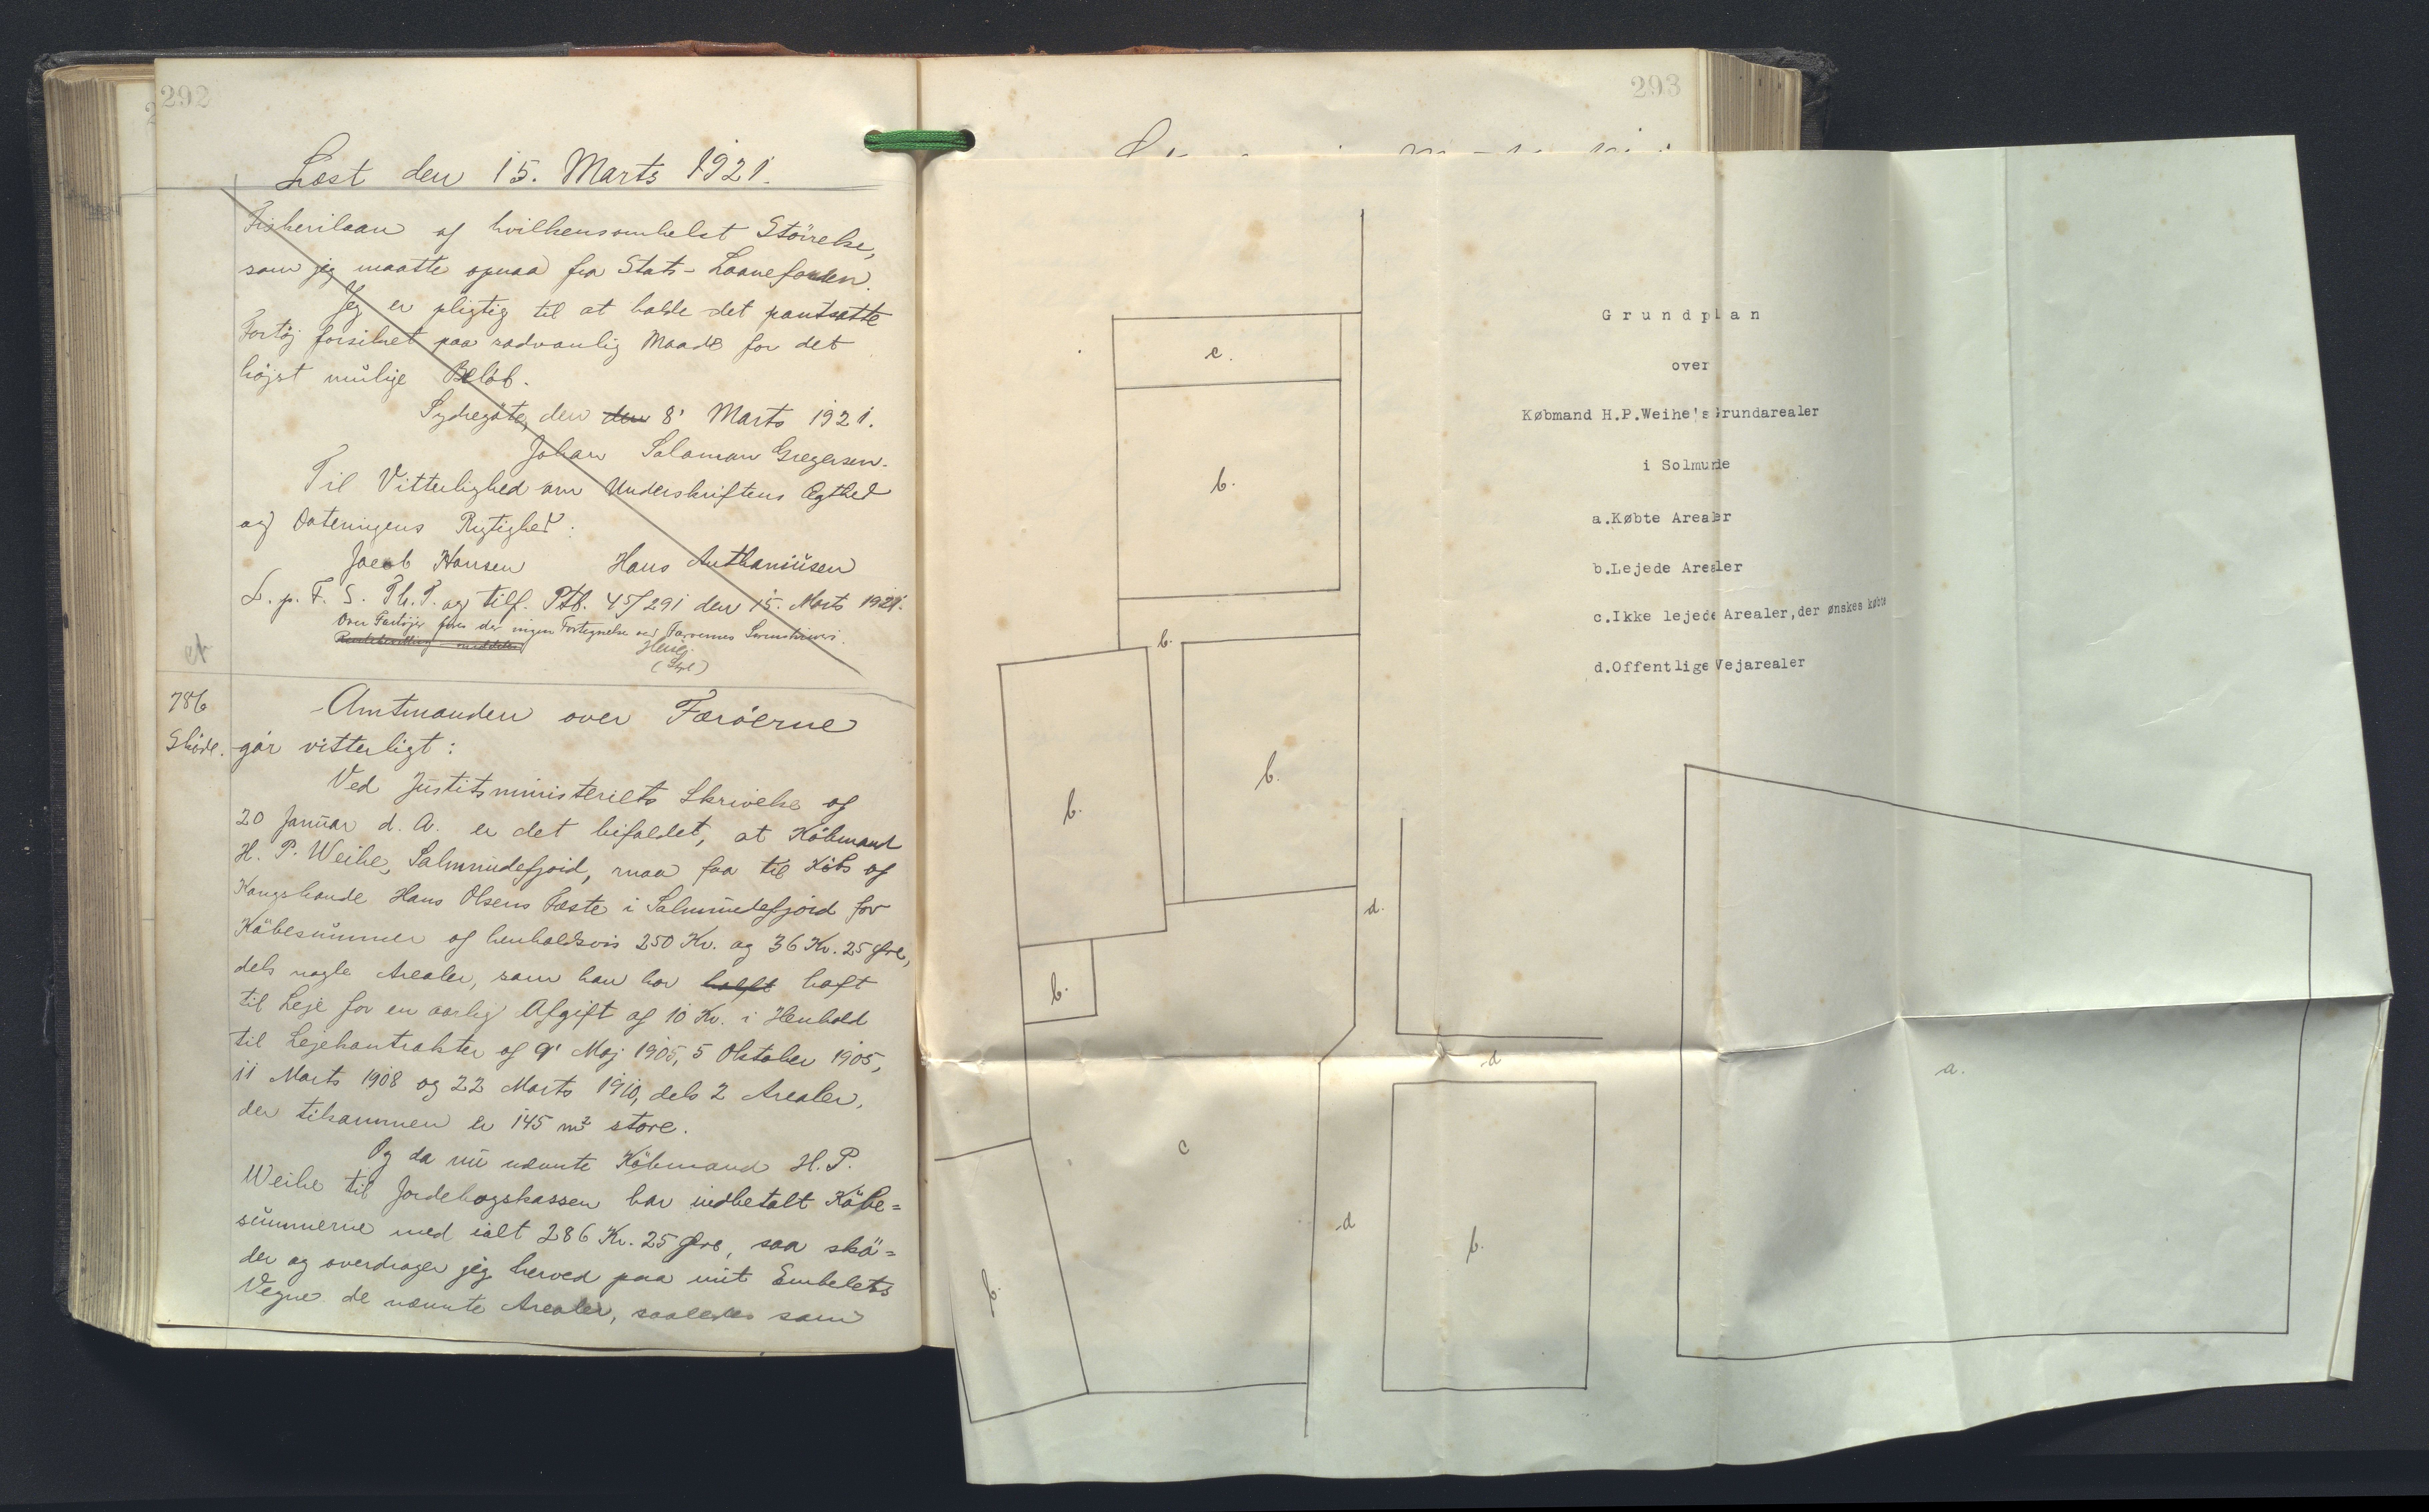 292
Læst den 15. Marts 1921.
Fiskerilaan af hvilkensomhelst Störrelse,
som jeg maatte opnaa fra Stats-Laanefonden.
Jeg er pligtig til at holde det pantsatte
Fartöj forsikret paa sædvanlig Maade for det
höjst mulige Belöb.
Sydregöte, den den 8' Marts 1921.
Johan Salomon Gregersen.
Til Vitterlighed om Underskriftens Ægthed
og Dateringens Rigtighed:
Jacob Hansen Hans Anthoniüsen
L. p. F. S. Th. P. og tilf. Ptb. 45/291 den 15. Marts 1921.
Over Fartöjer föres der ingen Fortegnelse ved Færöernes Sorenskriveri.
786
Sköde.
Amtmanden over Færöerne
gör vitterligt:
Ved Justitsministeriets Skrivelse af
20 Januar d. A. er det bifaldet, at Köbmand
H. P. Weihe, Salmundefjord, maa faa til Köbs af
Kongsbonde Hans Olsens Fæste i Salmundefjord for
Köbesummer af henholdsvis 250 Kr. og 36 Kr. 25 Øre,
dels nogle Arealer, som han har haft
til Leje for en aarlig Afgift af 10 Kr. i Henhold
til Lejekontrakter af 9' Maj 1905, 5 Oktober 1905,
11 Marts 1908 og 22 Marts 1910, dels 2 Arealer,
der tilsammen er 145 m² store.
Og da nu nævnte Köbmand H. P.
Weihe til Jordebogskassen har indbetalt Köbe=
summerne med ialt 286 Kr. 25 Øre, saa skö=
der og overdrager jeg herved paa mit Embedets
Vegne de nævnte Arealer, saaledes som
293
Grundplan
over
Købmand H.P.Weihe's Grundarealer
i Solmunde
a.Købte Arealer
b.Lejede Arealer
c.Ikke lejede Arealer,der ønskes købte
d.Offentlige Vejarealer
c.
b.
b.
b.
b.
d.
b.
d
a.
c
d
b.
b.